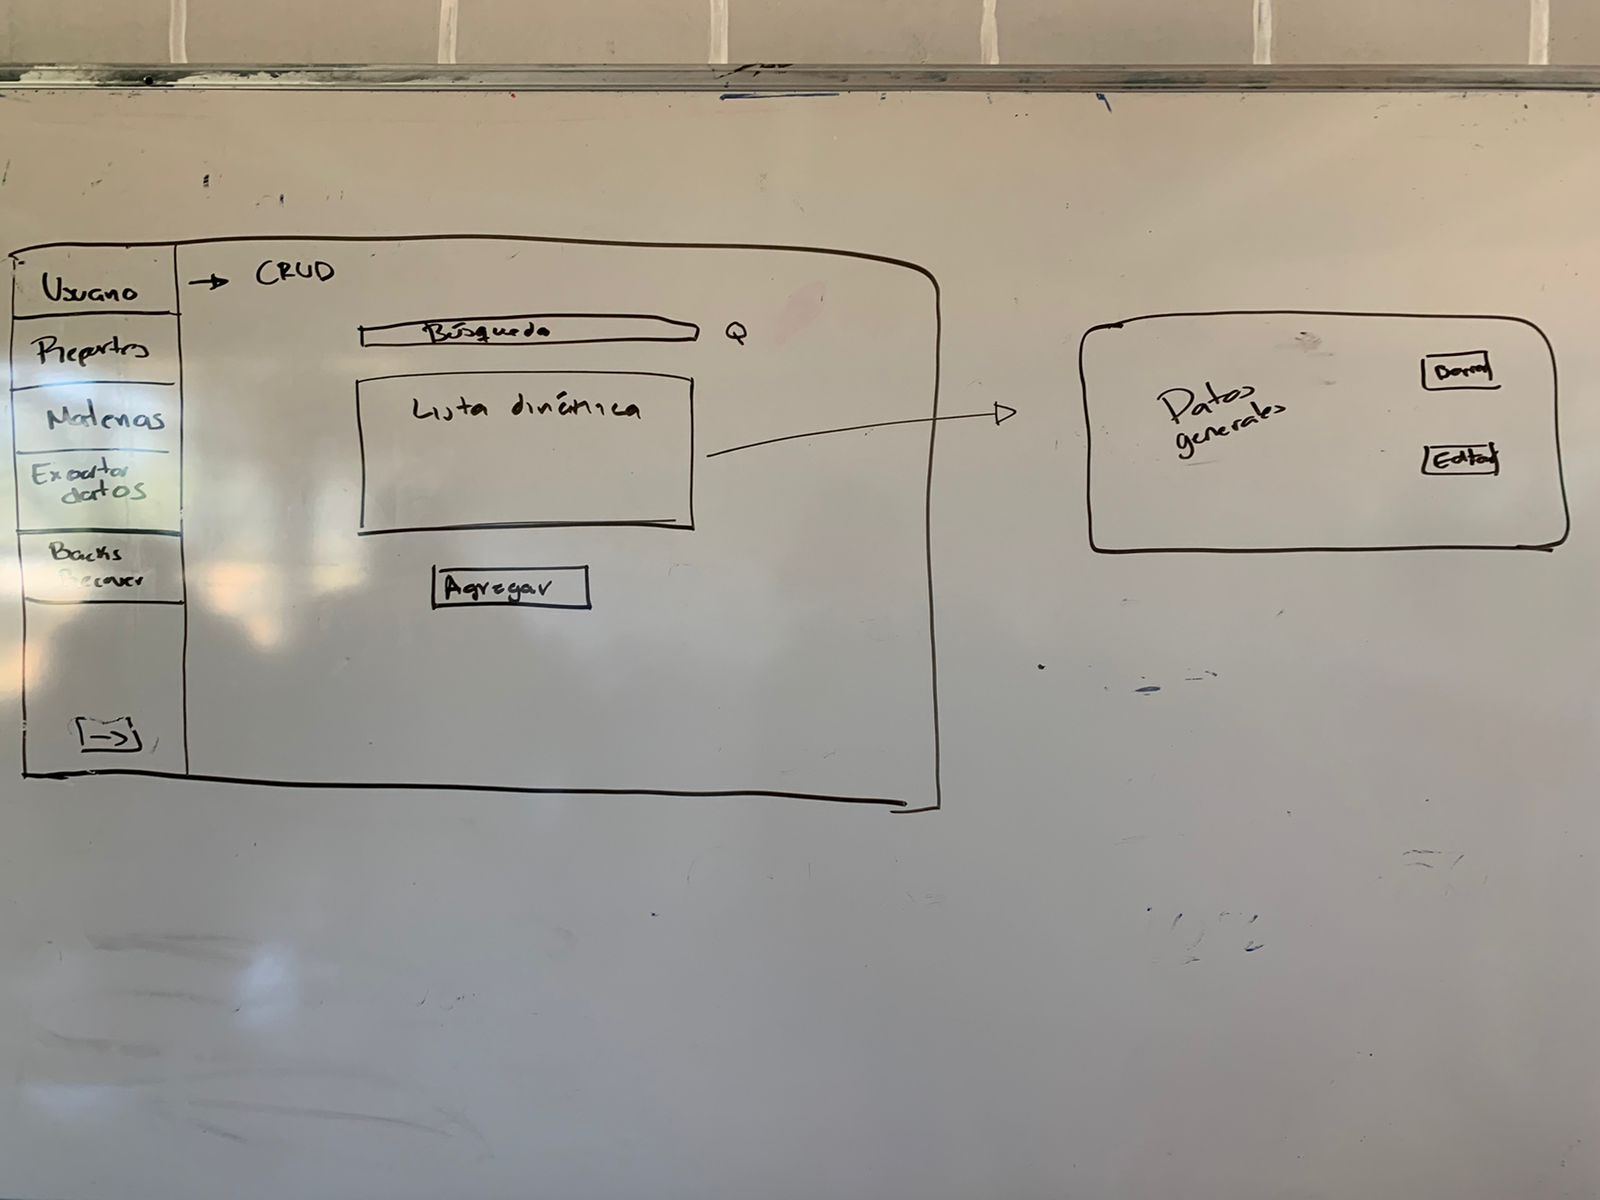 Usuario
→ CRUD
Reportes
Materias
Exportar
datos
Backs
Recover
→
Búsqueda
Lista dinámica
Agregar
Datos
generales
Borrar
Editar